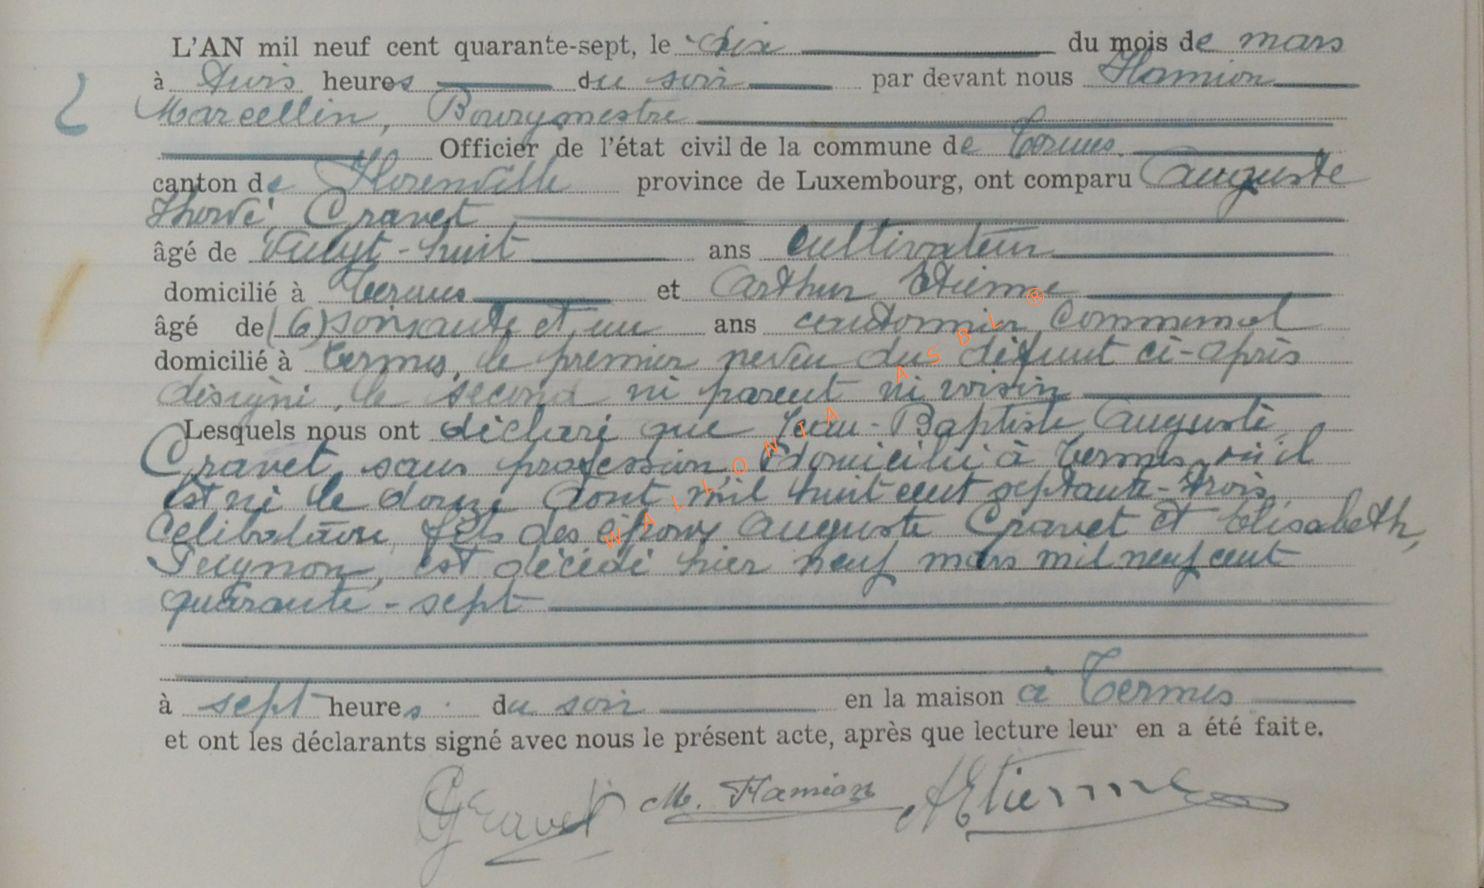 L'AN mil neuf cent quarante-sept, le dix du mois de mars
à trois heures du soir par devant nous Hamion
2
Marcellin, Bourgmestre
Officier de l'état civil de la commune de Termes
canton de Florenville province de Luxembourg, ont comparu Auguste
Gravet
âgé de Vingt-huit ans cultivateur
domicilié à Termes et Arthur Etienne
âgé de (6) soixante et un ans cantonnier Communal
domicilié à Termes, le premier neveu du défunt ci-après
désigné, le second ni parent ni voisin
Lesquels nous ont déclaré que Jean-Baptiste Auguste
Gravet, sans profession, domicilié à Termes, où il
est né le douze Août mil huit cent septante-trois,
célibataire, fils des époux Auguste Gravet et Elisabeth,
est décédé hier neuf mars mil neuf cent
quarante-sept
à sept heures du soir en la maison à Termes
et ont les déclarants signé avec nous le présent acte, après que lecture leur en a été faite.
Gravet M. Hamion AEtienne
WALLONIA ASBL ®